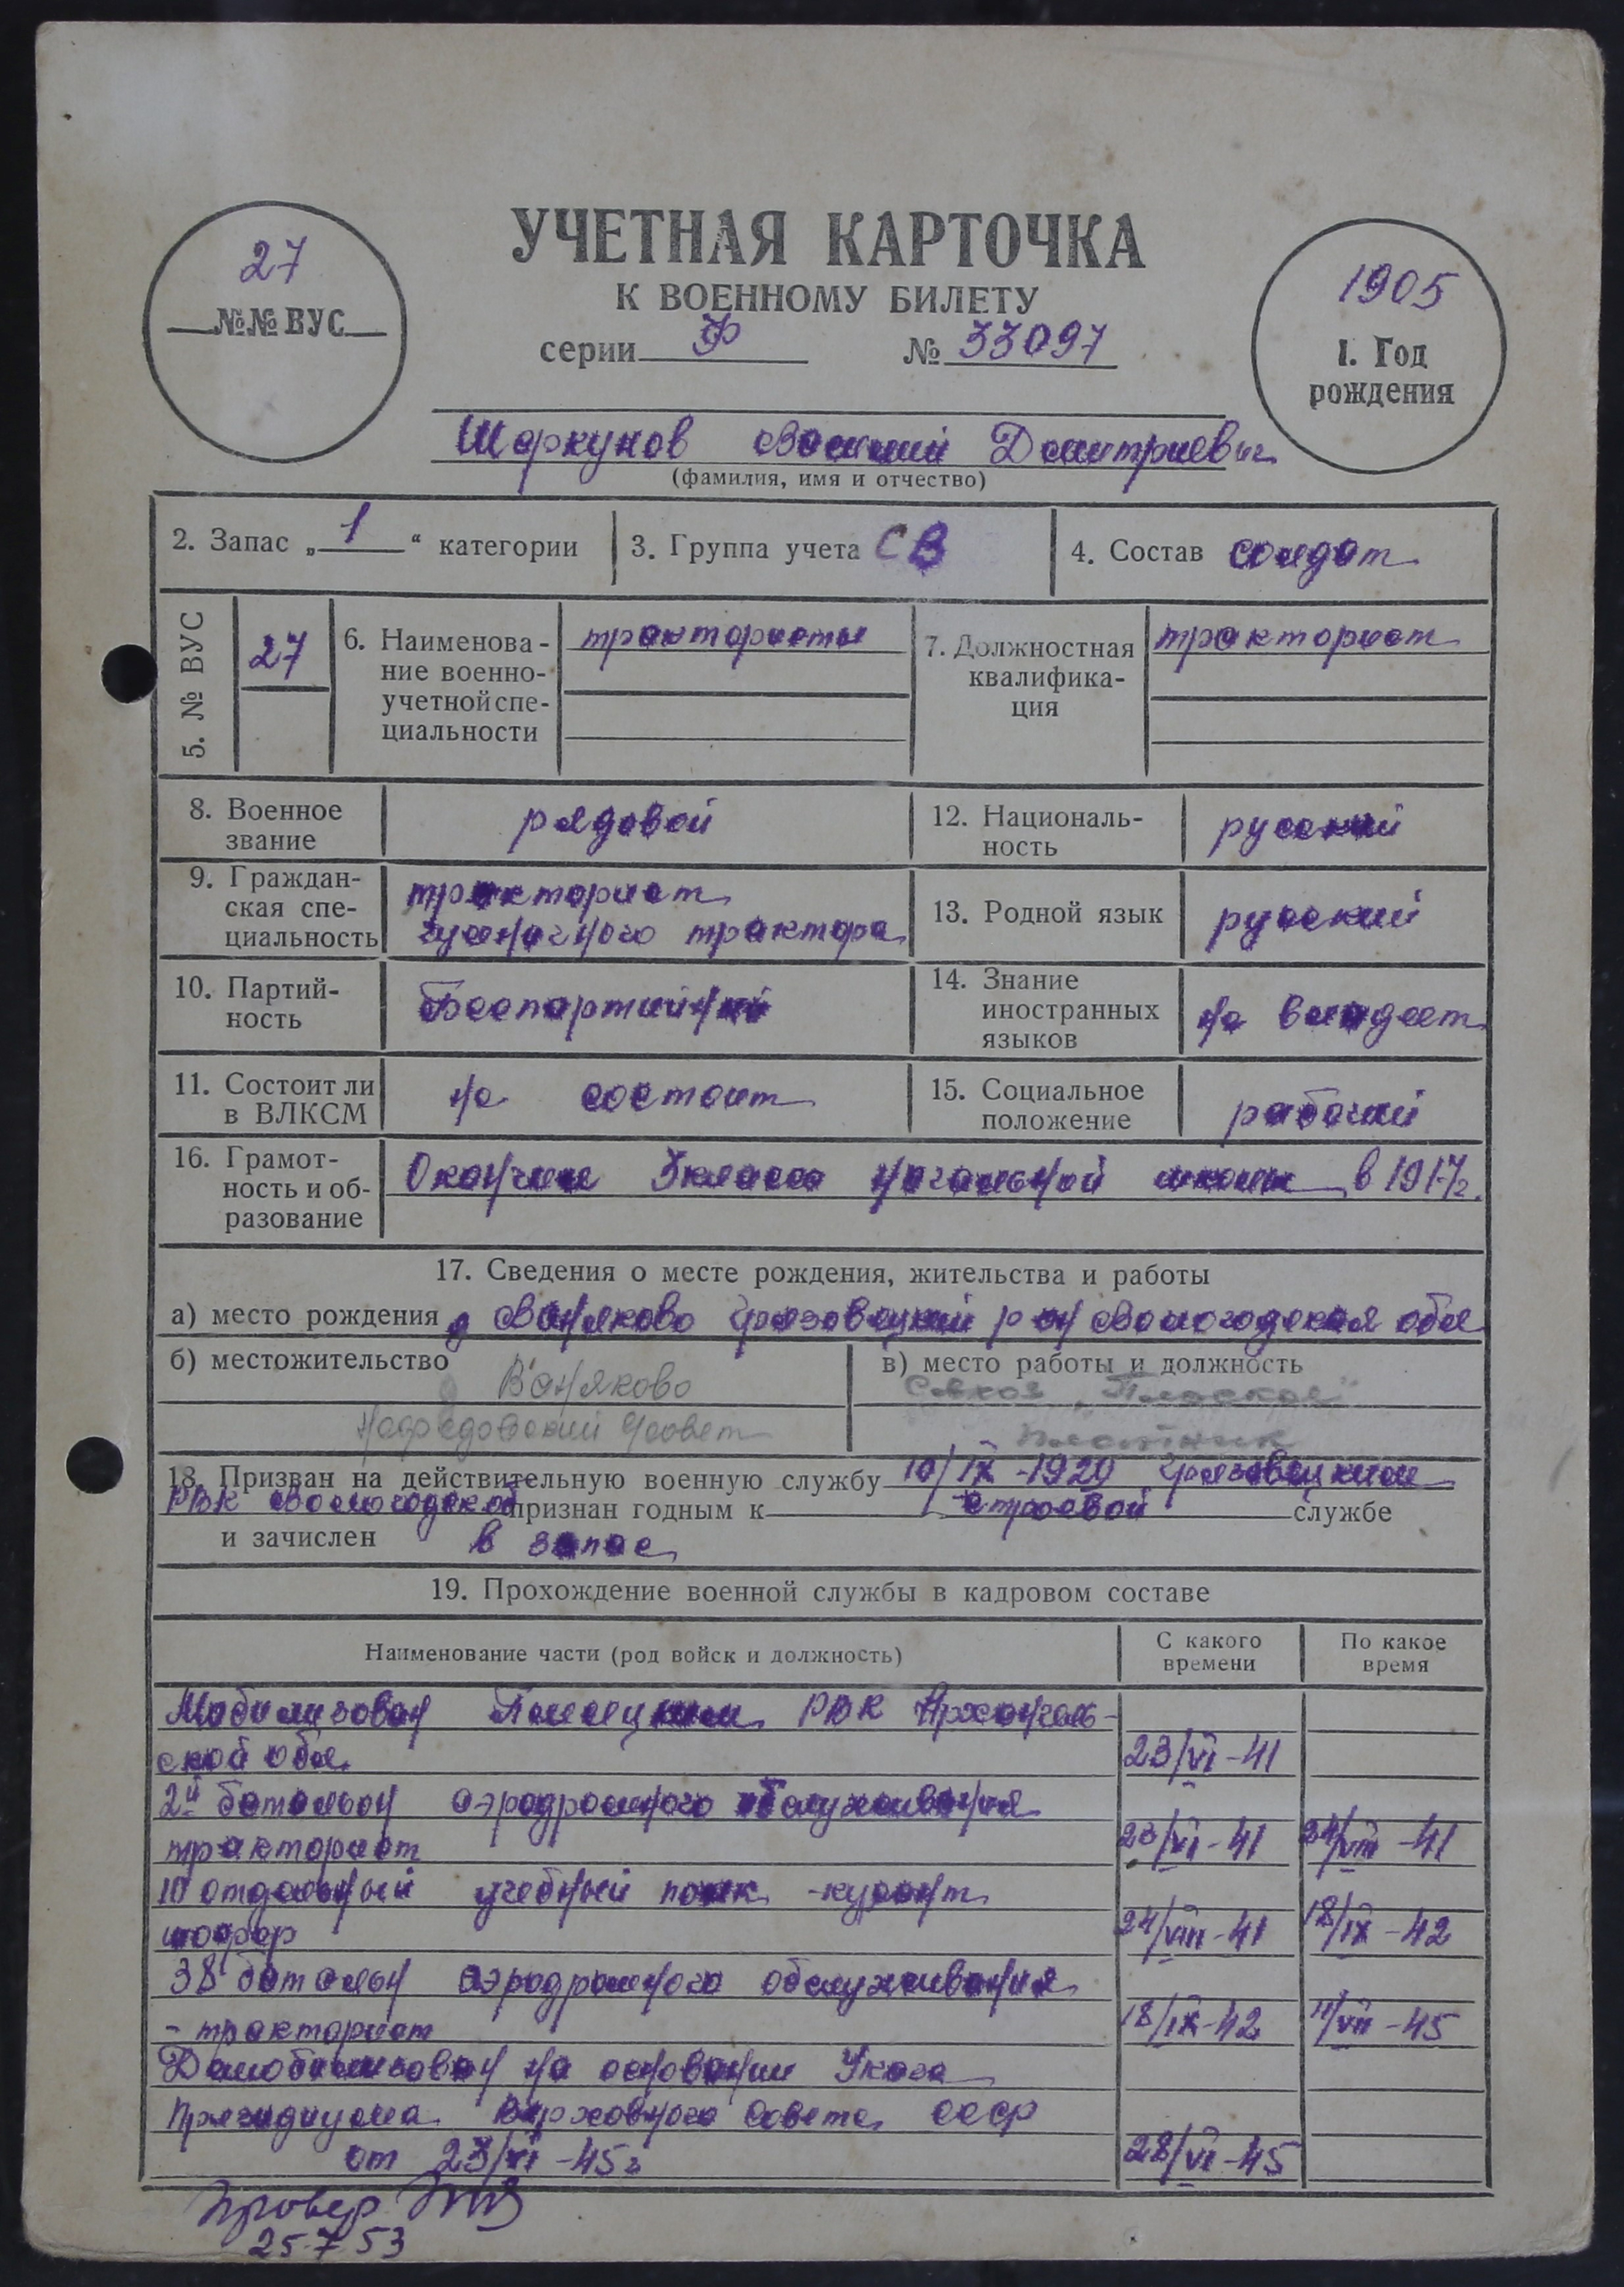 УЧЕТНАЯ КАРТОЧКА
К ВОЕННОМУ БИЛЕТУ
серии Ф № 33097
27
№№ ВУС
1905
1. Год
рождения
Шоркунов Василий Дмитриевич
(фамилия, имя и отчество)
2. Запас „1“ категории
3. Группа учета СВ
4. Состав солдат
5. № ВУС
27
6. Наименова-
ние военно-
учетной спе-
циальности
трактористы
7. Должностная
квалифика-
ция
тракторист
8. Военное
звание
рядовой
12. Националь-
ность
русский
9. Граждан-
ская спе-
циальность
тракторист
гусеничного трактора
13. Родной язык
русский
10. Партий-
ность
Беспартийный
14. Знание
иностранных
языков
не владеет
11. Состоит ли
в ВЛКСМ
не состоит
15. Социальное
положение
рабочий
16. Грамот-
ность и об-
разование
Окончил 3 класса начальной школы в 1917 г.
17. Сведения о месте рождения, жительства и работы
а) место рождения д Ваняково Грязовецкий р он Вологодская обл
б) местожительство
д Ваняково
совет
в) место работы и должность
Совхоз „Плоское“
плотник
18. Призван на действительную военную службу 10/IX-1929 Грязовецким
РВК Вологодской признан годным к строевой службе
и зачислен в запас
19. Прохождение военной службы в кадровом составе
Наименование части (род войск и должность)
С какого
времени
По какое
время
Мобилизован Плесецким РВК Архангель-
ской обл. 23/VI-41
2й батальон аэродромного обслуживания
тракторист 23/VI-41 24/VIII-41
10 отдельный учебный полк -курсант
шофер 24/VIII-41 18/IX-42
38 батальон аэродромного обслуживания
- тракторист 18/IX-42 11/VII-45
Демобилизован на основании Указа
Президиума Верховного Совета СССР
от 23/VI-45г 28/VI-45
Провер
25-7-53